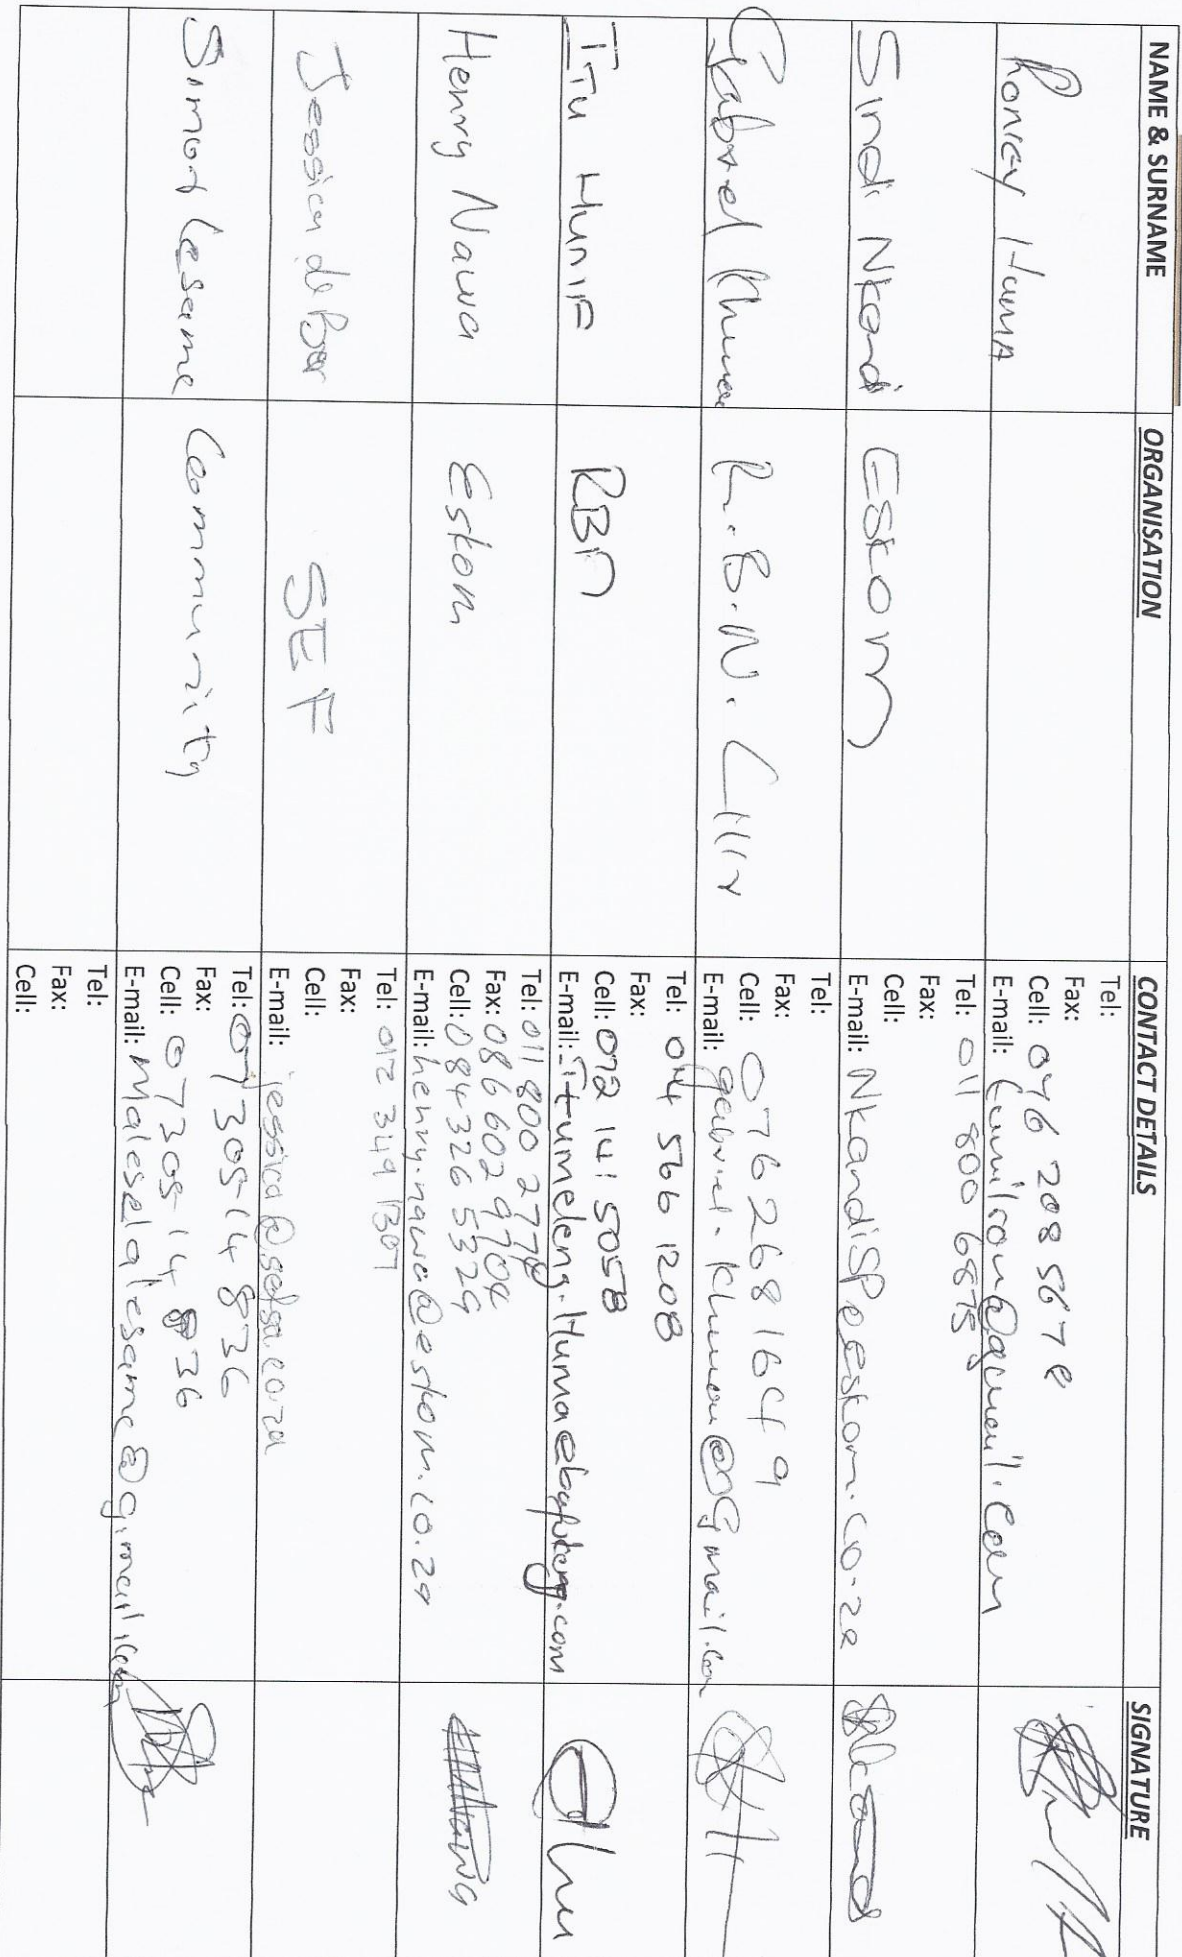 NAME & SURNAME
ORGANISATION
CONTACT DETAILS
SIGNATURE
Tel:
Fax:
Cell: 076 208 5672
E-mail:
Sindi Nkandi
Eskom
Tel: 011 800 6875
Fax:
Cell:
E-mail: NkandiSP@eskom.co.za
Gabriel Khumou
R.B.N.
Tel:
Fax:
Cell: 076 268 1649
E-mail: gabriel.khumou@gmail.com
ITU HUMA
RBN
Tel: 014 566 1208
Fax:
Cell: 072 141 5058
E-mail: Itumeleng.Huma@bafokeng.com
Henry Nawa
Eskom
Tel: 011 800 2778
Fax: 086 602 9704
Cell: 084 326 5329
E-mail: henry.nawa@eskom.co.za
Jessica de Beer
SEF
Tel: 012 349 1307
Fax:
Cell:
E-mail: jessica@sefsa.co.za
Simon Lesame
Community
Tel: 07305-14836
Fax:
Cell: 07305-14836
E-mail: Maleselalesame@gmail.com
Tel:
Fax:
Cell: